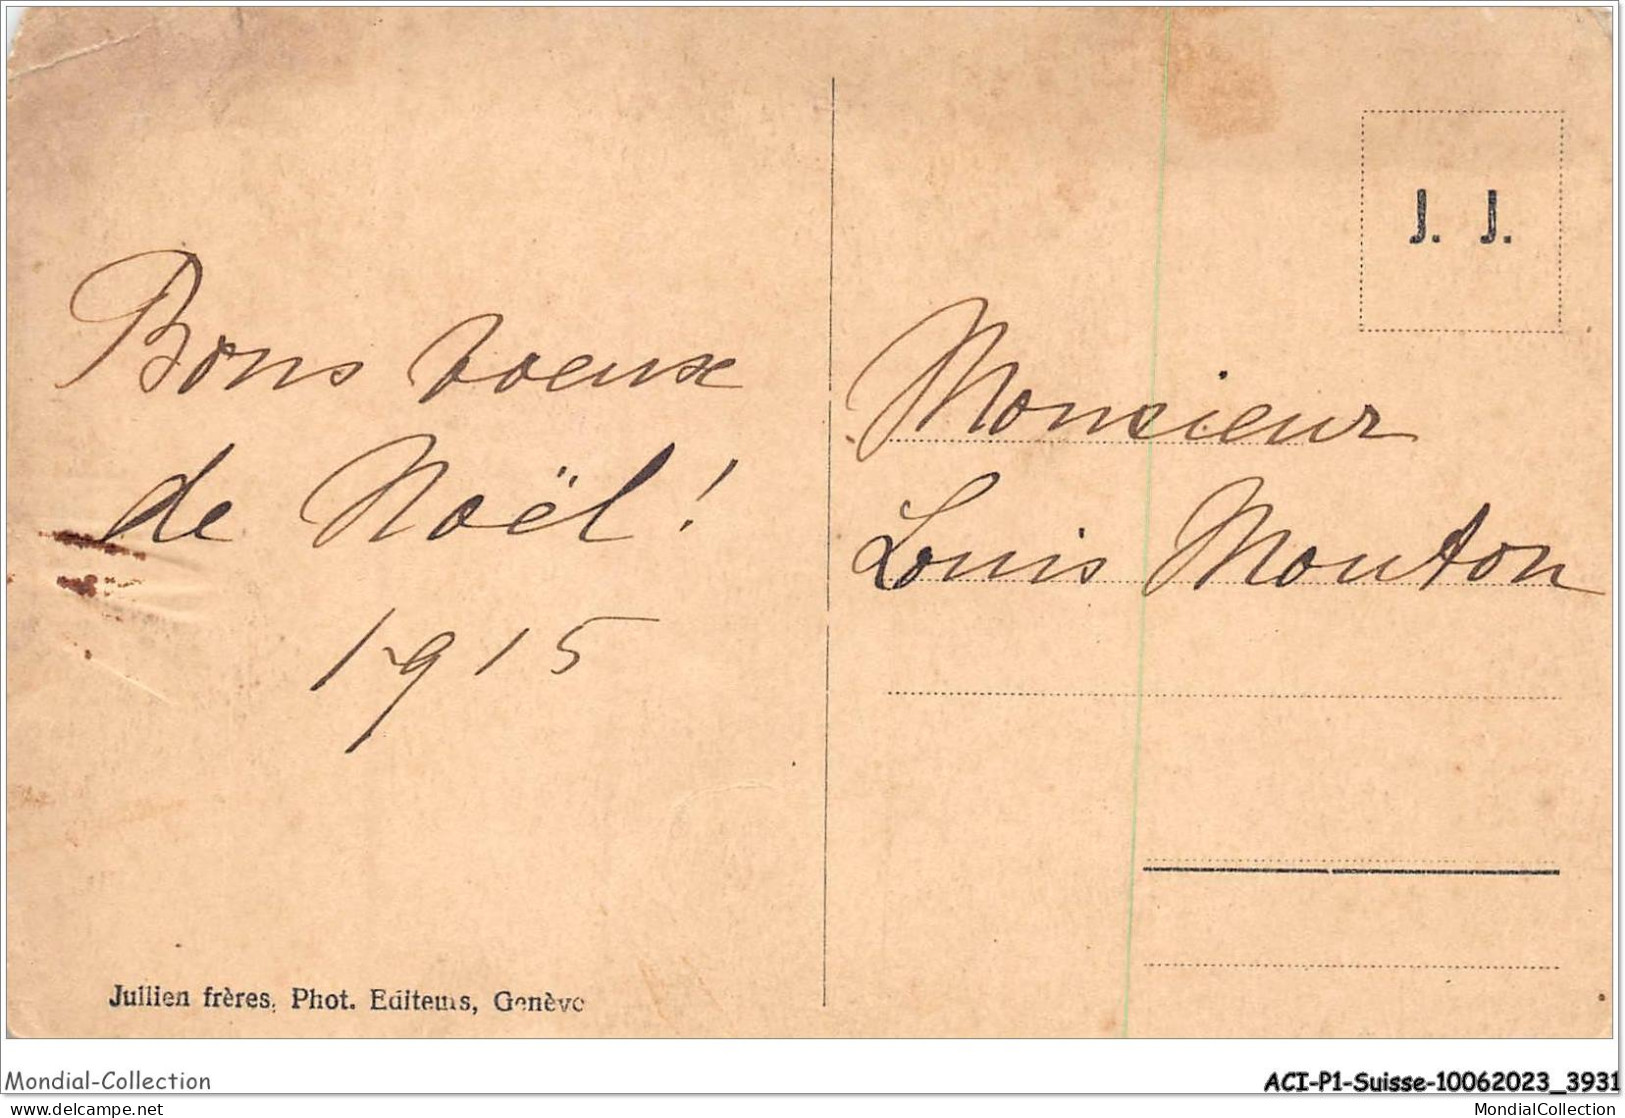 Bons voeux
de Noël !
1915
J. J.
Monsieur
Louis Mouton
Jullien frères, Phot. Editeurs, Genève
Mondial-Collection
ACI-P1-Suisse-10062023_3931
www.delcampe.net
MondialCollection